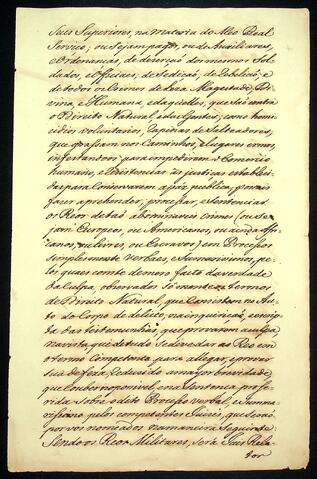 seus Superiores, na materia do Meo Real
Serviço; ou sejam pagos, ou de Auxiliares,
e Ordenanças, de deserção dos mesmos Sol-
dados, e Officiaes, de Sedição, de Rebelião, e
de todos os Crimes de Leza Magestade, Di-
vina, e Humana, e daquelles, que são contra
o Direito Natural, e das Gentes; como homi-
cidios voluntarios, rapinas de Salteadores,
que grassam nos Caminhos, e Lugares ermos,
infestando-os para impedirem o Comercio
humano, e resistencias ás justiças estabeleci-
das para conservarem a paz publica; possais
fazer aprehender, processar, e sentenciar
os Reos de taes abominaveis crimes (ou se-
jam Europeos, ou Americanos, ou Affri-
canos, ou livres, ou Escravos) em Processos
simplesmente verbaes, e Summarissimos, pe-
los quaes conste de mero facto da verdade
da Culpa, observados somente os termos
de Direito Natural, que Consistem no Auto
do Corpo de delicto, na inquirição,
das testemunhas, que provarem a culpa,
na vista que de tudo se deve dar ao Reo em
o termo competente para allegar, e provar
sua defeza, reduzido a mayor brevidade,
que couber no possivel, e na Sentença profe-
rida sobre o dito Processo verbal, e Summa-
rissimo pelos competentes Juizes, que serão
por vós nomeados na maneira seguinte
Sendo os Reos Militares, será Juis Rela-
tor